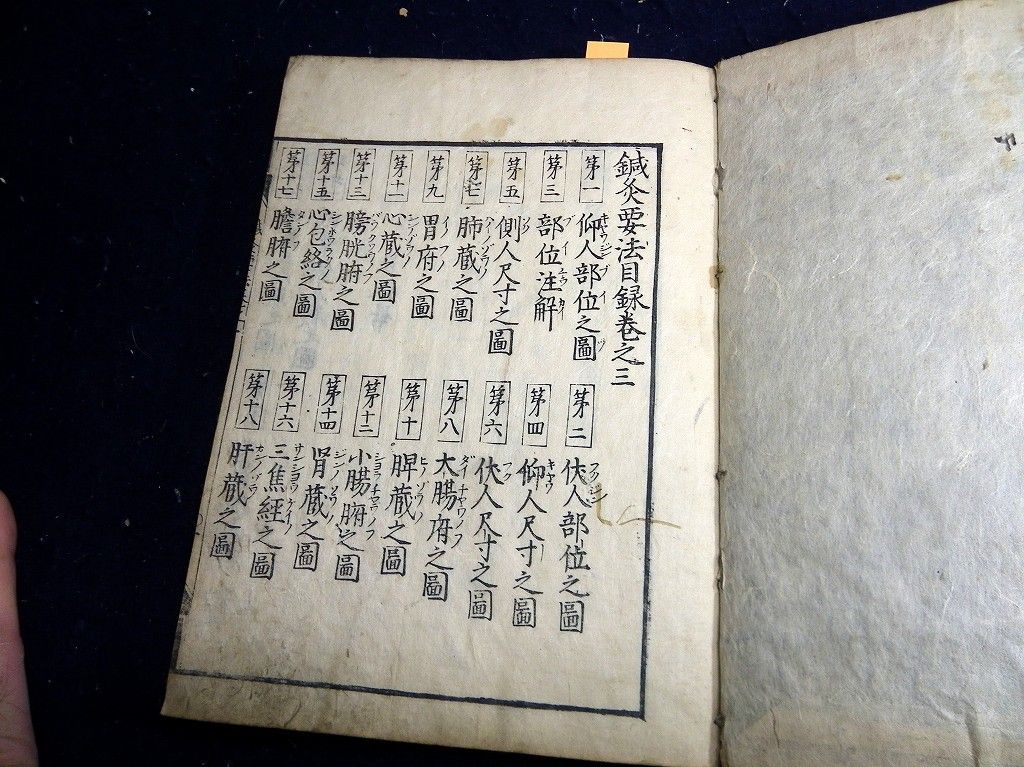 鍼灸要法目録巻之三
第一 仰人部位之圖
第二 伏人部位之圖
第三 部位注解
第四 仰人尺寸之圖
第五 側人尺寸之圖
第六 伏人尺寸之圖
第七 肺蔵之圖
第八 大腸府之圖
第九 胃府之圖
第十 脾蔵之圖
第十一 心蔵之圖
第十二 小腸腑之圖
第十三 膀胱腑之圖
第十四 腎蔵之圖
第十五 心包絡之圖
第十六 三焦経之圖
第十七 膽腑之圖
第十八 肝蔵之圖